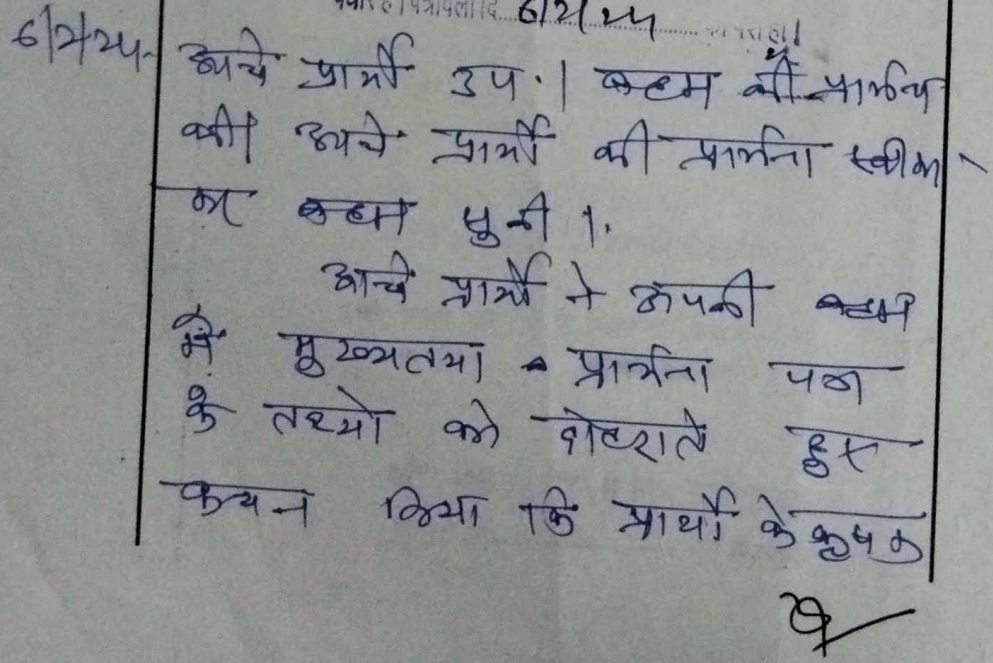 6/2/24
6/2/24- अधि प्रार्थी उप.। बहस की प्रार्थना
की। अधि प्रार्थी की प्रार्थना स्वीका
कर बहस सुनी।
अधि प्रार्थी ने अपनी बहस
में मुख्यतया प्रार्थना पत्र
के तथ्यो को दोहराते हुए
कथन किया कि प्रार्थी के कृषक